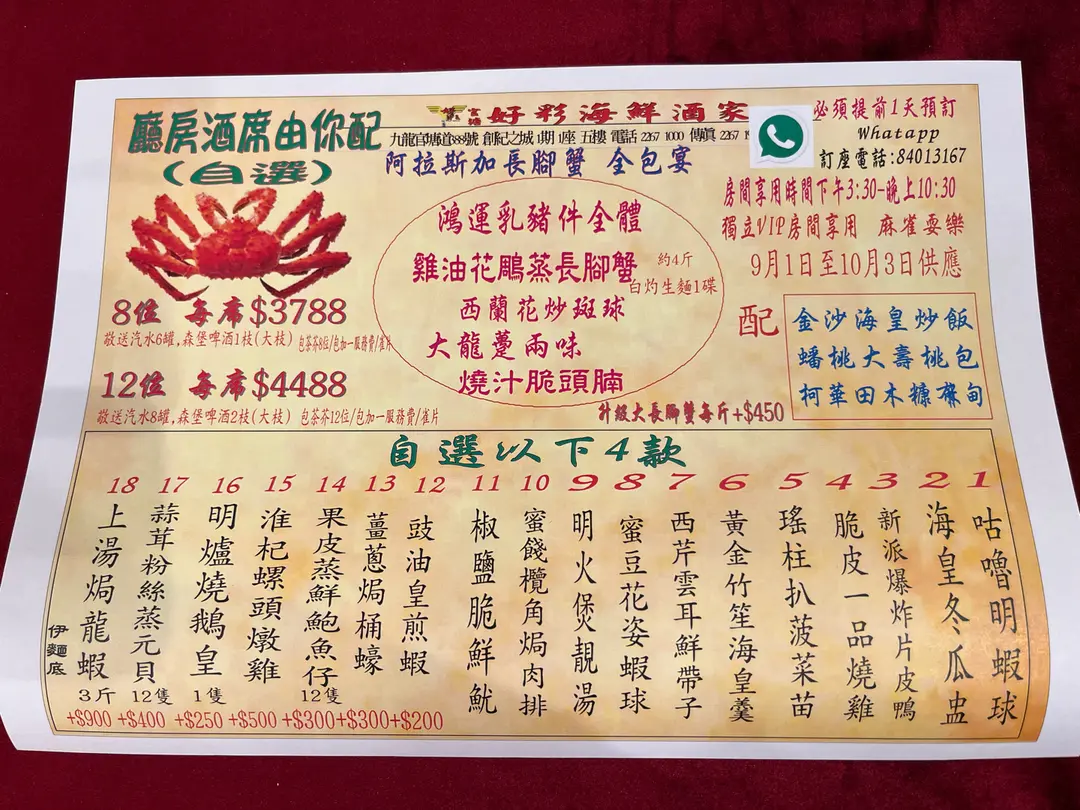 廳房酒席由你配
(自選)
富臨
好彩海鮮酒家
九龍官塘道888號 創紀之城1期1座 五樓 電話 2267 1000 傳真 2267
阿拉斯加長腳蟹 全包宴
必須提前1天預訂
Whatapp
訂座電話:84013167
房間享用時間下午3:30-晚上10:30
獨立VIP房間享用 麻雀耍樂
9月1日至10月3日供應
鴻運乳豬件全體
雞油花鵰蒸長腳蟹 約4斤
白灼生麵1碟
西蘭花炒斑球
大龍躉兩味
燒汁脆頭腩
升級大長腳蟹每斤+$450
8位 每席$3788
敬送汽水6罐,森堡啤酒1枝(大枝) 包茶芥8位/包加一服務費/雀片
12位 每席$4488
敬送汽水8罐,森堡啤酒2枝(大枝) 包茶芥12位/包加一服務費/雀片
配
金沙海皇炒飯
蟠桃大壽桃包
柯華田木糠
甸
自選以下4款
1 咕嚕明蝦球
2 海皇冬瓜盅
3 新派爆炸片皮鴨
4 脆皮一品燒雞
5 瑤柱扒菠菜苗
6 黃金竹笙海皇羹
7 西芹雲耳鮮帶子
8 蜜豆花姿蝦球
9 明火煲靚湯
10 蜜餞欖角焗肉排
11 椒鹽脆鮮魷
12 豉油皇煎蝦 +$200
13 薑蔥焗桶蠔 +$300
14 果皮蒸鮮鮑魚仔 12隻 +$300
15 淮杞螺頭燉雞 +$500
16 明爐燒鵝皇 1隻 +$250
17 蒜茸粉絲蒸元貝 12隻 +$400
18 上湯焗龍蝦 3斤 +$900
伊麵底